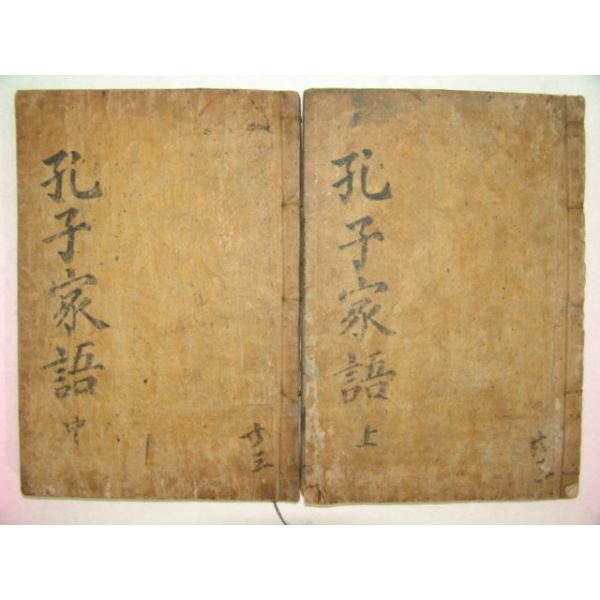 孔子家語
上
孔子家語
中
共三